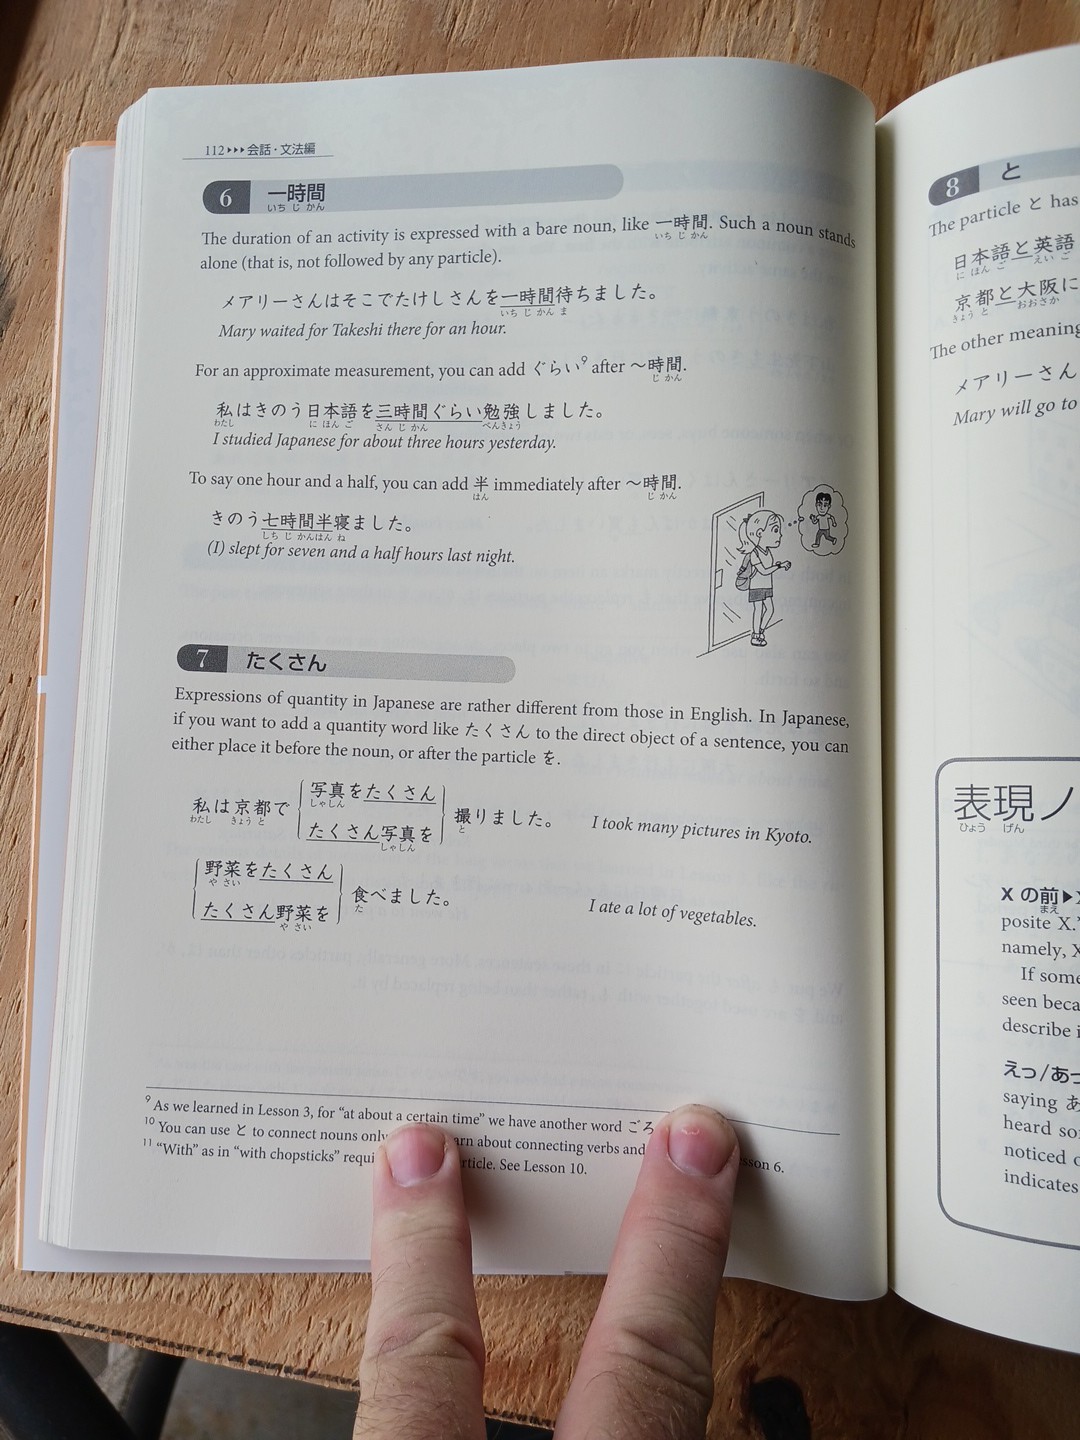 112▶▶▶会話・文法編
6 一時間
いちじかん
The duration of an activity is expressed with a bare noun, like 一時間. Such a noun stands
いちじかん
alone (that is, not followed by any particle).
メアリーさんはそこでたけしさんを一時間待ちました。
いちじかん ま
Mary waited for Takeshi there for an hour.
For an approximate measurement, you can add ぐらい9 after 〜時間.
じかん
私はきのう日本語を三時間ぐらい勉強しました。
わたし にほんご さんじかん べんきょう
I studied Japanese for about three hours yesterday.
To say one hour and a half, you can add 半 immediately after 〜時間.
はん じかん
きのう七時間半寝ました。
しちじかんはん ね
(I) slept for seven and a half hours last night.
7 たくさん
Expressions of quantity in Japanese are rather different from those in English. In Japanese,
if you want to add a quantity word like たくさん to the direct object of a sentence, you can
either place it before the noun, or after the particle を.
写真をたくさん
しゃしん
私は京都で 撮りました。 I took many pictures in Kyoto.
わたし きょうと と
たくさん写真を
しゃしん
野菜をたくさん
やさい
食べました。 I ate a lot of vegetables.
た
たくさん野菜を
やさい
9 As we learned in Lesson 3, for "at about a certain time" we have another word ごろ
10 You can use と to connect nouns only about connecting verbs and 6.
11 "With" as in "with chopsticks" See Lesson 10.
8 と
The particle と has
日本語と英語
にほんご えいご
京都と大阪に
きょうと おおさか
The other meaning
メアリーさん
Mary will go to
表現ノ
ひょうげん
Xの前▶
まえ
posite X.
namely, X
If some
seen beca
describe i
えっ/あっ
saying あ
heard so
noticed
indicates